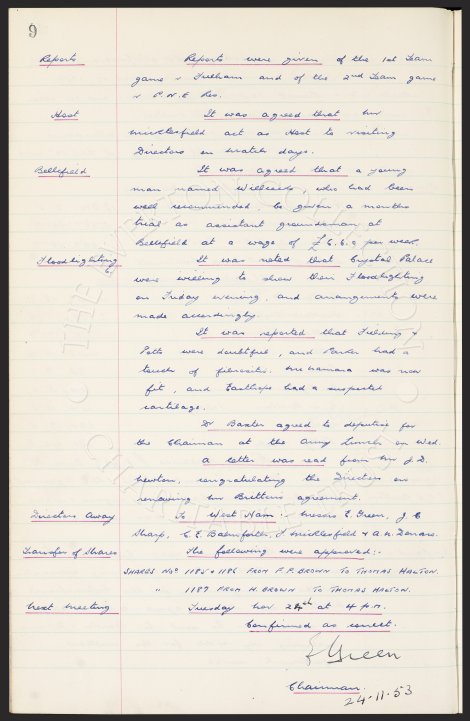 9
Reports Reports were given of the 1st Team
game v Fulham and of the 2nd Team game
v P.N.E Res.
Host It was agreed that Mr
Micklesfield act as Host to visiting
Directors on match days.
Bellefield It was agreed that a young
man named Willcocks, who had been
well recommended be given a months
trial as assistant groundsman at
Bellefield at a wage of £6.6.0 per week.
Floodlighting It was noted that Crystal Palace
were willing to show their Floodlighting
on Friday evening and arrangements were
made accordingly.
It was reported that Fielding &
Potts were doubtful, and Parker had a
touch of fibrositis. McNamara was now
fit, and Easthope had a suspected
cartilage.
Dr Baxter agreed to deputise for
the Chairman at the Army Lunch on Wed.
A letter was read from Mr J.D.
Newton, congratulating the Directors on
renewing Mr Britton's agreement.
Directors Away To West Ham :- Messrs E. Green, J. C
Sharp, C. E. Balmforth, F Micklesfield & A. H.
Transfer of Shares The following were approved:-
SHARES Nos 1185 & 1186 FROM F.P. BROWN TO THOMAS HALTON.
" 1187 FROM H. BROWN TO THOMAS HALTON.
Next Meeting Tuesday Nov 24th at 4 p.m.
Confirmed as correct.
E Green
Chairman.
24-11-53